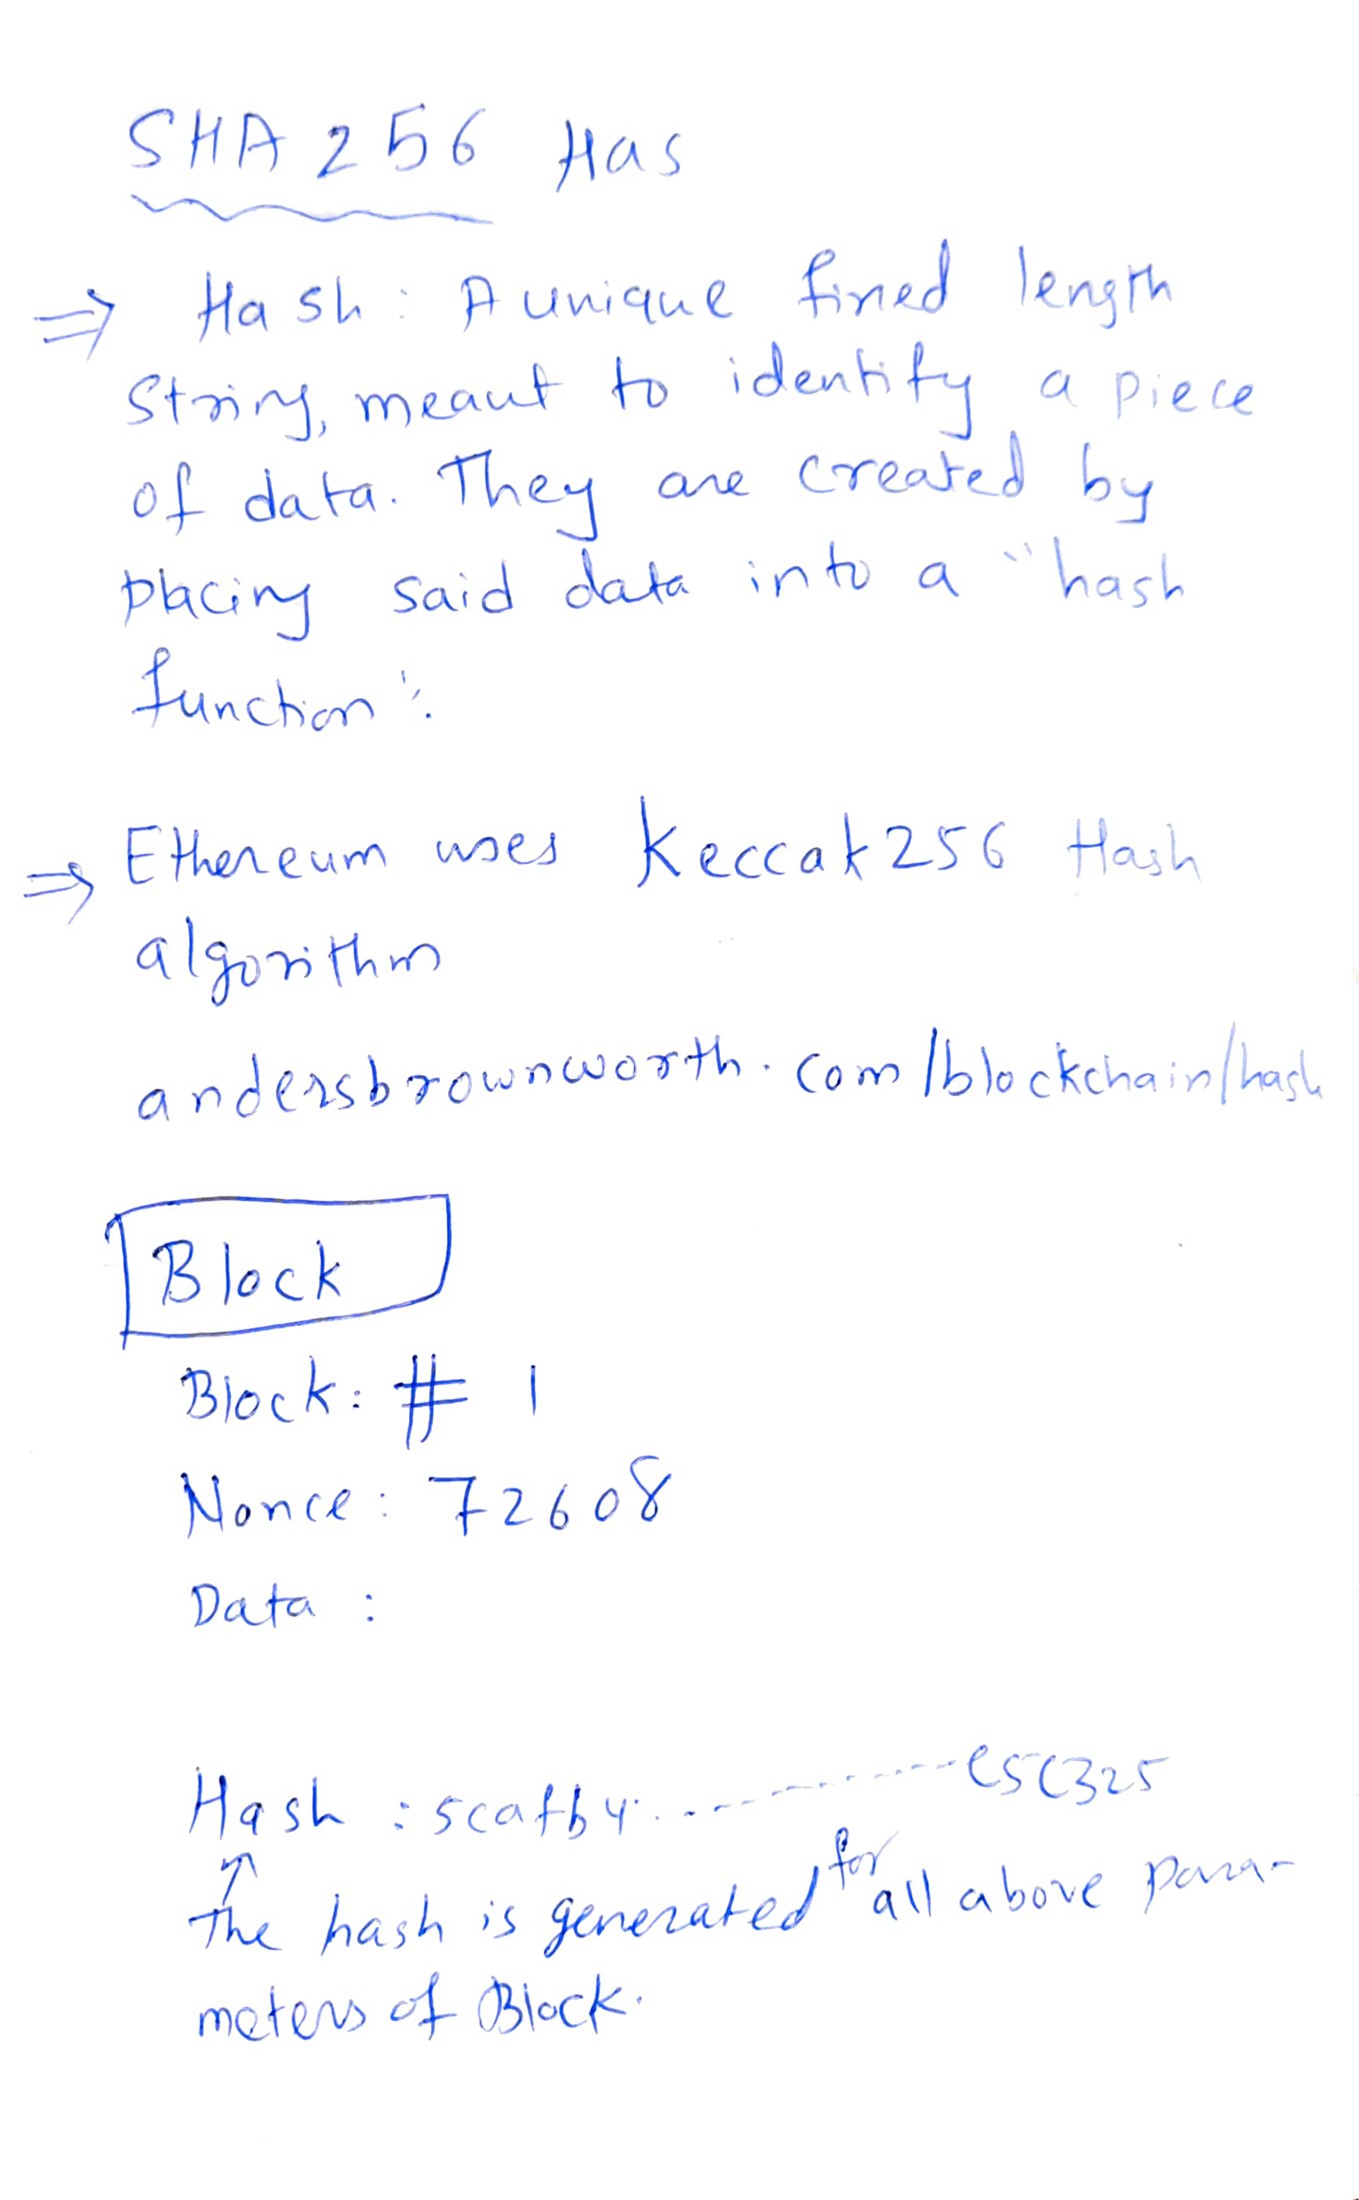 SHA 256 Has
⇒ Hash : A unique fixed length
String, meant to identify a piece
of data. They are created by
placing said data into a "hash
function".
⇒ Ethereum uses Keccak256 Hash
algorithm
andersbrownworth.com/blockchain/hash
Block
Block: # 1
Nonce: 72608
Data :
Hash : 5cafb4..........e5c325
↑
The hash is generated for all above para-
meters of Block.